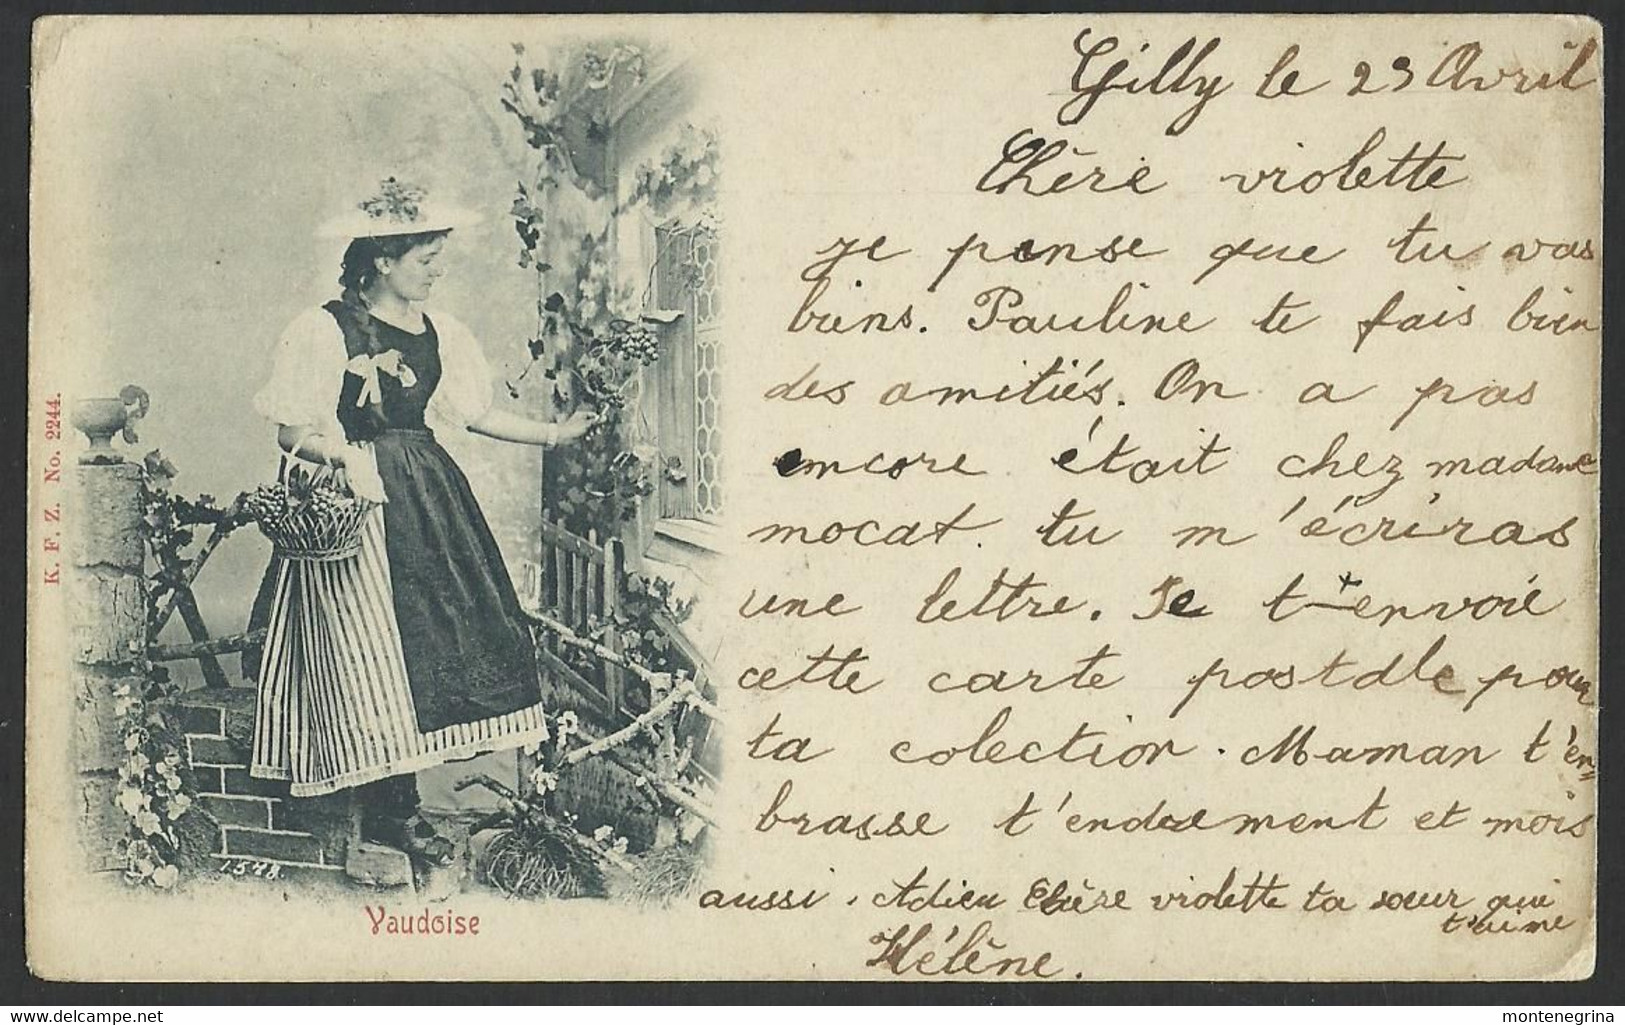 Gilly le 23 Avril
Chère violette
je pense que tu vas
biens. Pauline te fais bien
des amitiés. On a pas
encore était chez madame
mocat. tu m'écriras
une lettre. Je t'envoie
cette carte postale pour
ta colection. Maman t'en-
brasse t'endrement et mois
aussi. Adieu Chère violette ta sœur qui
t'aime
Hélène.
K. F. Z. No. 2244.
1578.
Vaudoise
montenegrina